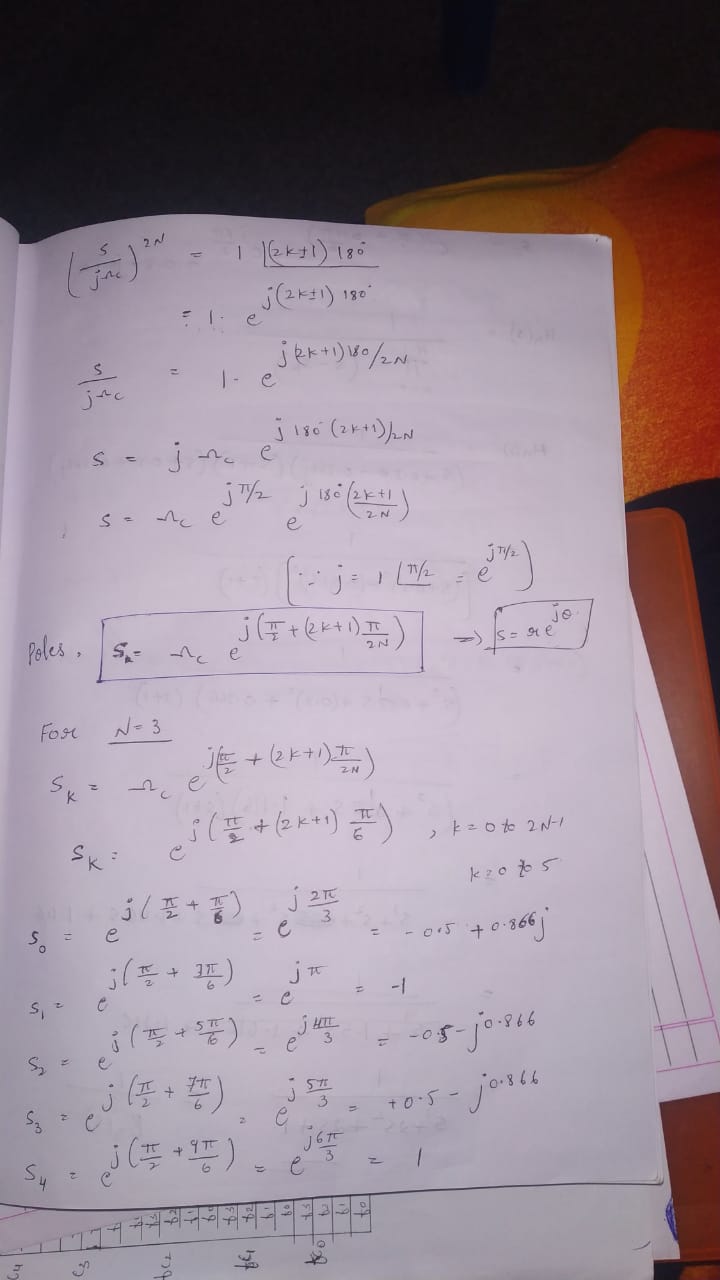 (s/jΩc)^2N = 1 ∠(2k±1) 180°
= 1. e^j(2k±1) 180°
s/jΩc = 1. e^j(2k+1)180/2N
s = jΩc e^j 180°(2k+1)/2N
s = Ωc e^jπ/2 e^j 180°(2k+1/2N)
(∵ j = 1 ∠π/2 = e^jπ/2)
Poles, Sk = Ωc e^j(π/2 + (2k+1) π/2N) => s = re^jθ
For N = 3
Sk = Ωc e^j(π/2 + (2k+1) π/2N)
Sk = e^j(π/2 + (2k+1) π/6) , k = 0 to 2N-1
k = 0 to 5
S0 = e^j(π/2 + π/6) = e^j 2π/3 = -0.5 + 0.866j
S1 = e^j(π/2 + 3π/6) = e^jπ = -1
S2 = e^j(π/2 + 5π/6) = e^j4π/3 = -0.5 - j0.866
S3 = e^j(π/2 + 7π/6) = e^j 5π/3 = +0.5 - j0.866
S4 = e^j(π/2 + 9π/6) = e^j6π/3 = 1